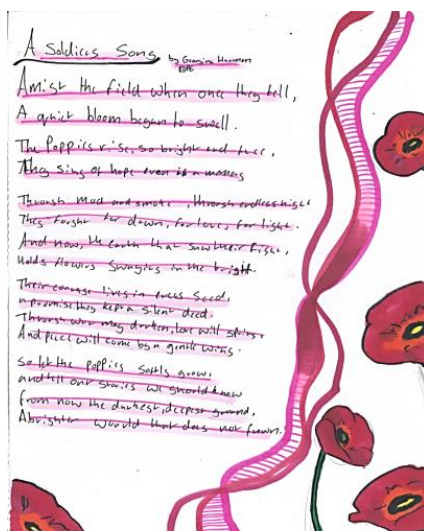 A Soldiers Song
by Georgina Harman
Amist the field when once they fell,
A quiet bloom began to swell.
The Poppies rise, so bright and free,
They sing of hope even in a
Through mud and smoke, through endless night
They forght for dawn, for love, for light.
And now, the earth that saw their fight,
Holds flowers swaying in the bright.
Their courage lives in every seed,
a promise they kept a silent deed.
Through war may darken, love will
And peace will come by a gentle wing.
So let the poppies softly grow,
and tell our stories we should know
from now the darkest, deepest ground,
A brighter world that does not frown.